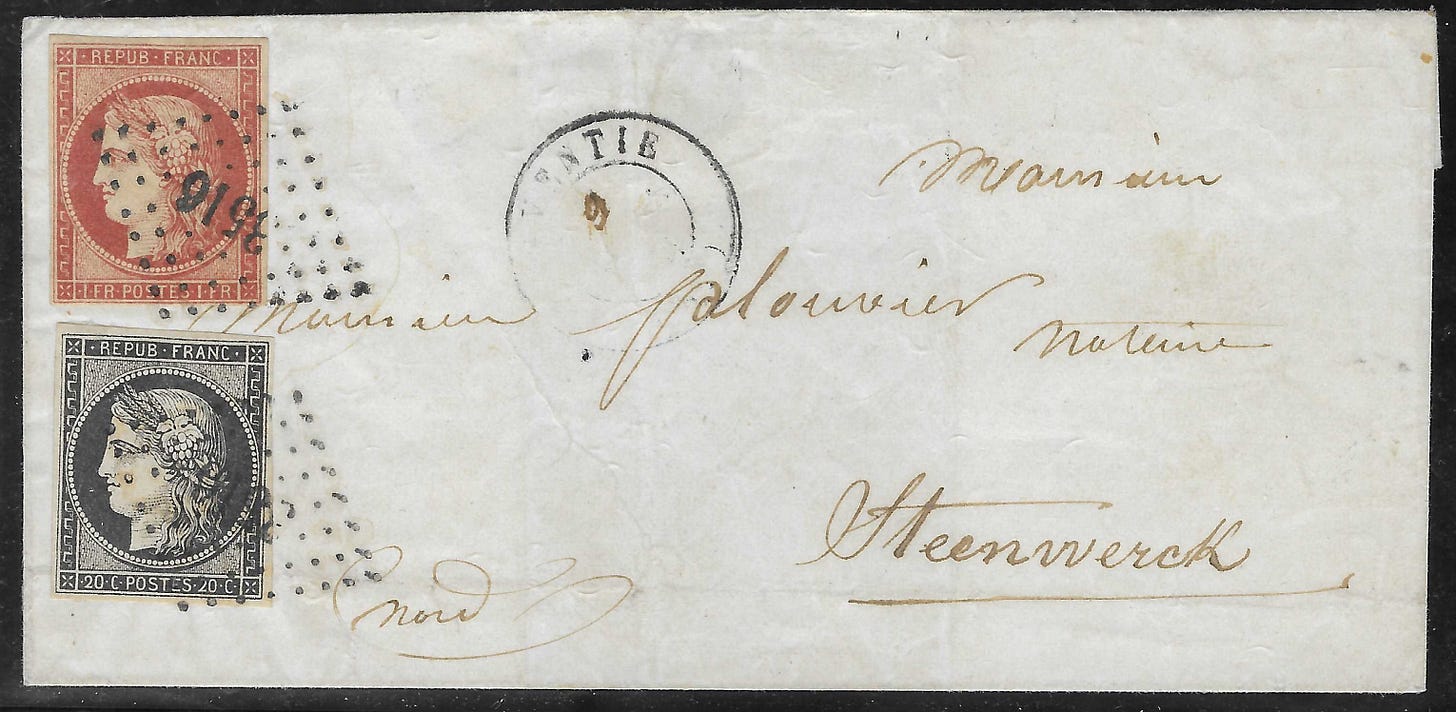 REPUB · FRANC ·
3516
1 · FR · POSTES · 1 · FR
VENTIE
9
Monsieur
Monsieur Plouvier
notaire
REPUB · FRANC ·
20 · C · POSTES · 20 · C
Steenwerck
nord